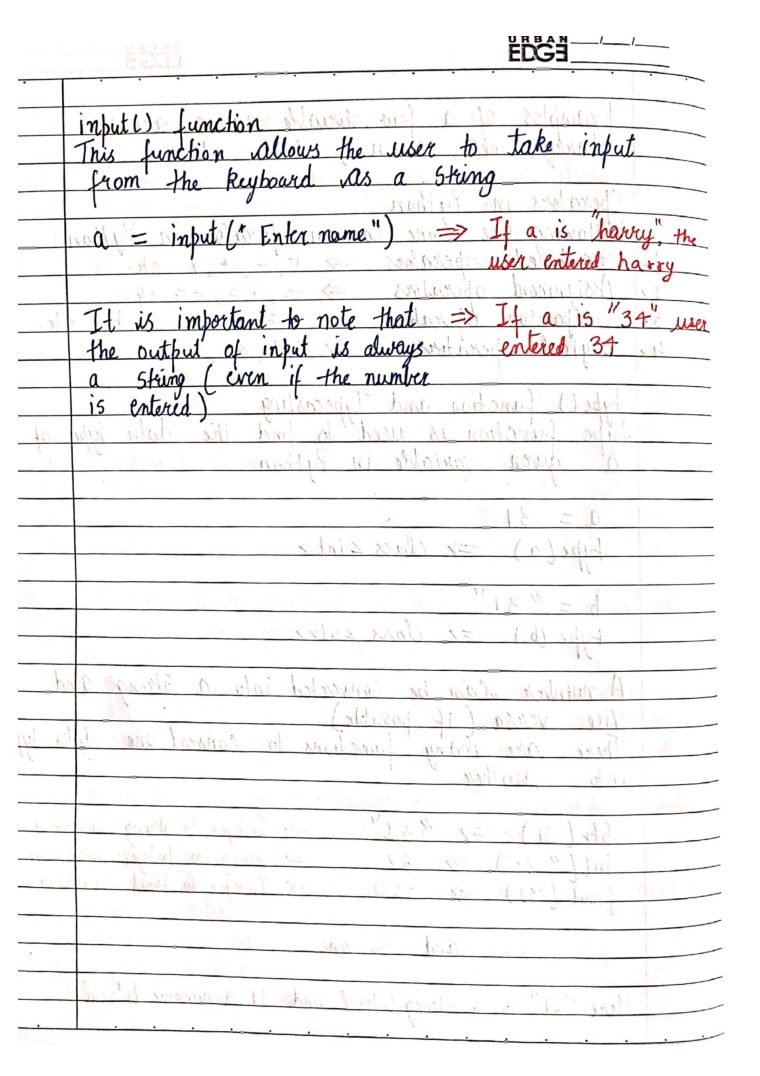 URBAN
EDGE
input() function
This function allows the user to take input
from the keyboard as a string
a = input(" Enter name") ⇒ If a is "harry", the
user entered harry
It is important to note that ⇒ If a is "34" user
the output of input is always entered 34
a string (even if the number
is entered)